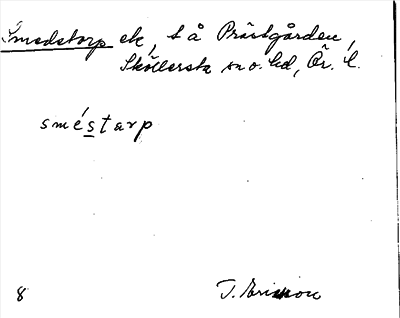 Smedstorp ek, t å Prästgården,
Sköllersta sn o. hd, Ör. l.
sméstarp
8 T. Ericsson